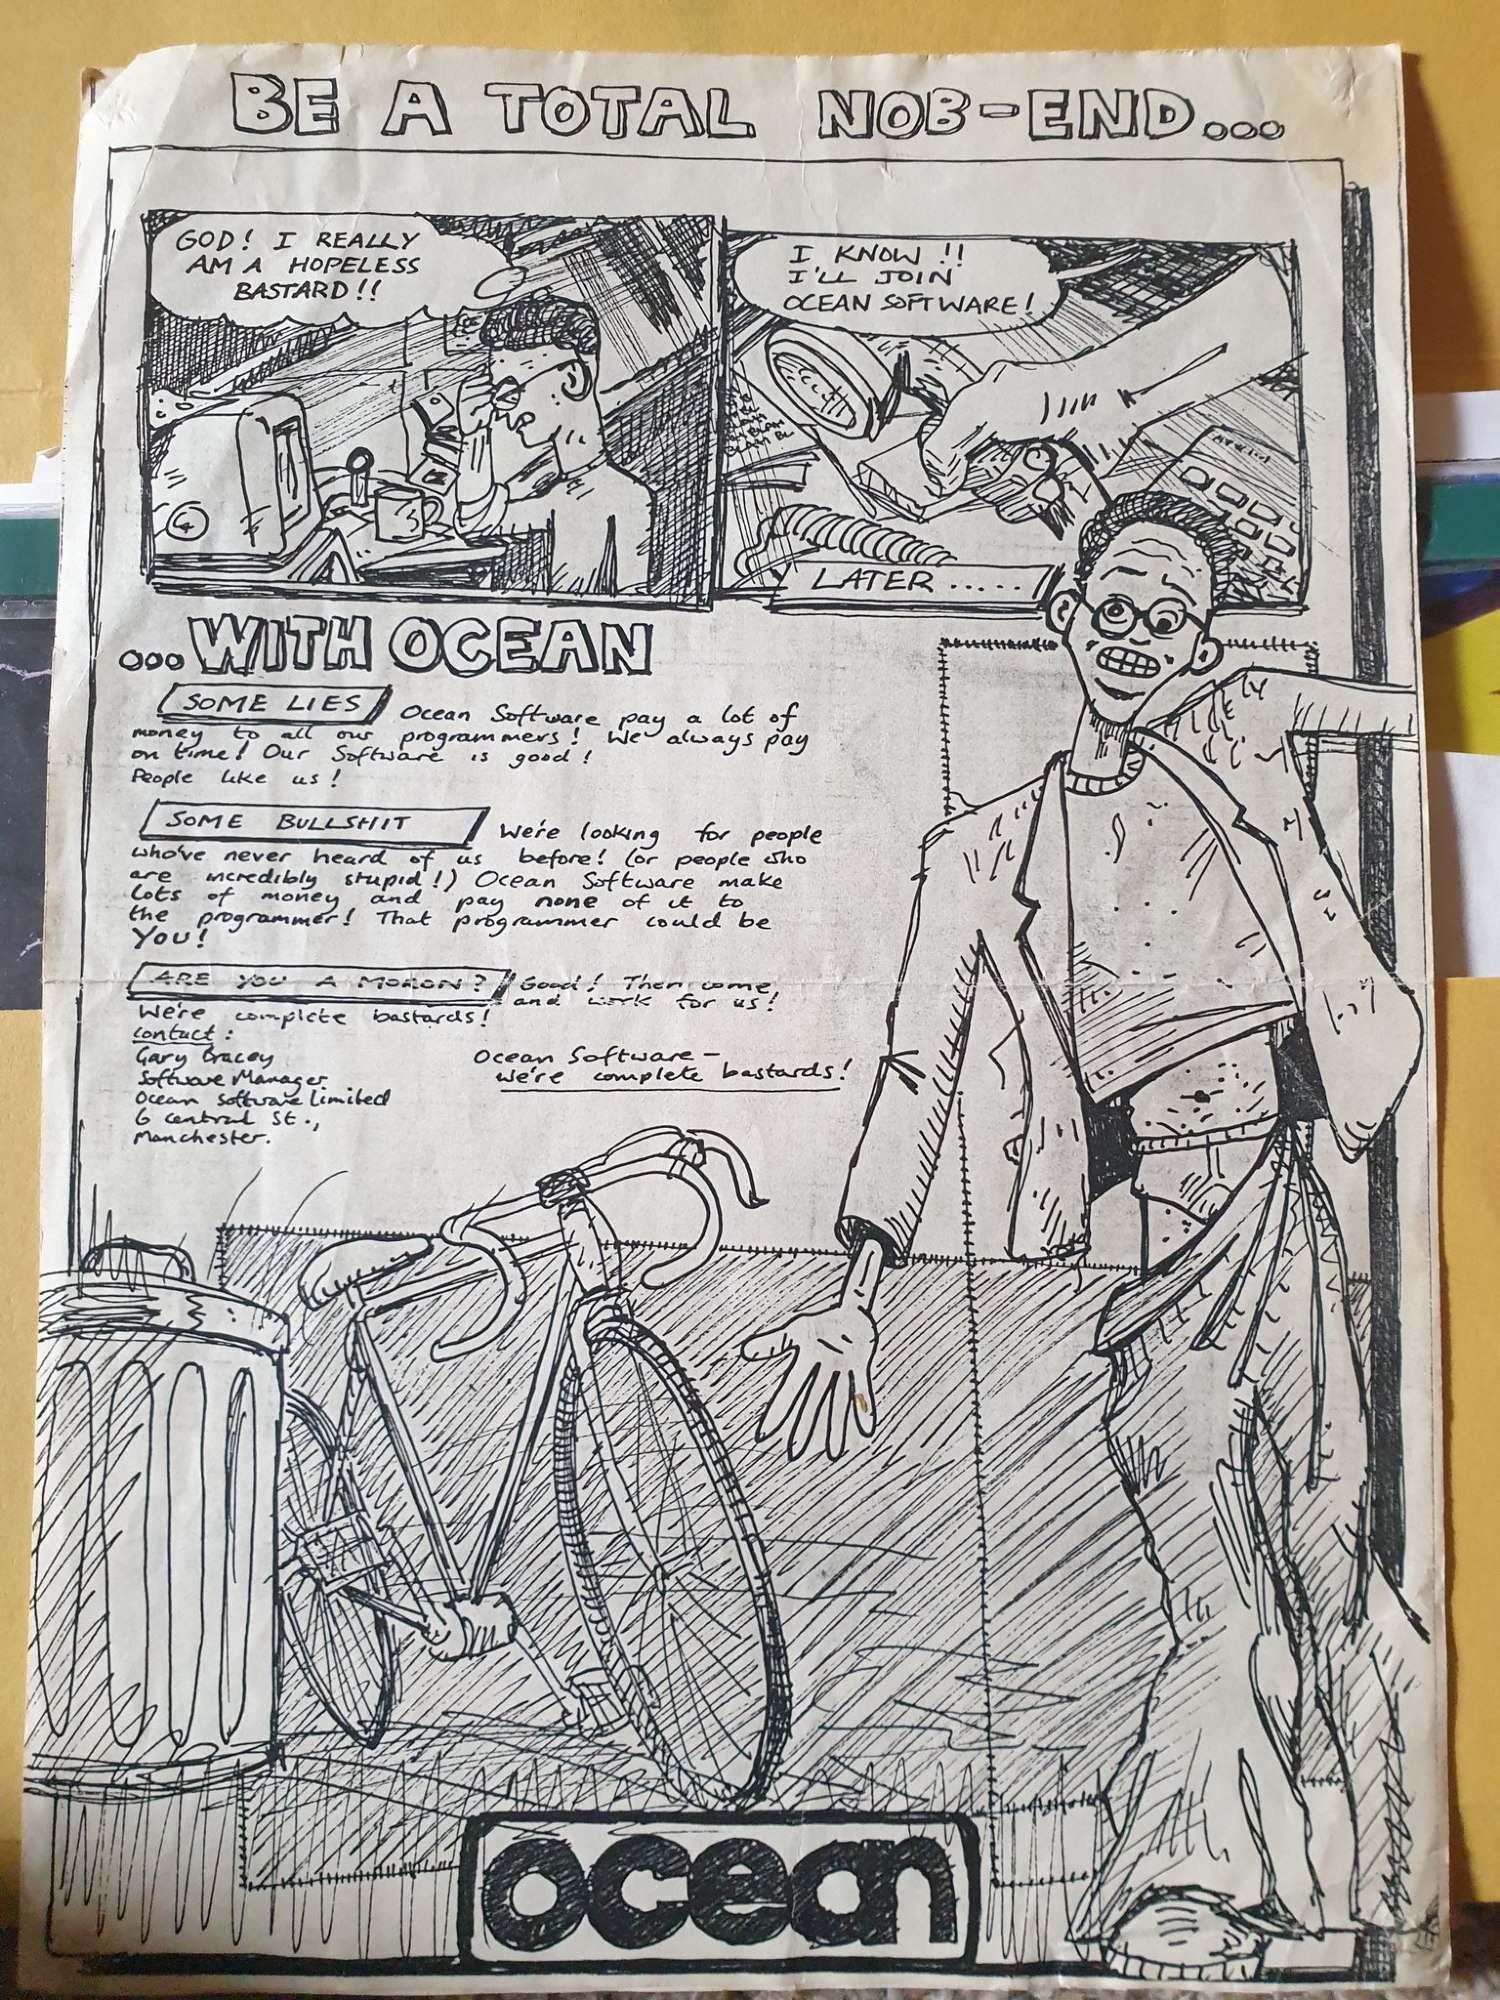 BE A TOTAL NOB-END...
GOD! I REALLY
AM A HOPELESS
BASTARD!!
I KNOW!!
I'LL JOIN
OCEAN SOFTWARE!
LATER.....
...WITH OCEAN
SOME LIES Ocean Software pay a lot of
money to all our programmers! We always pay
on time! Our Software is good!
People like us!
SOME BULLSHIT We're looking for people
who've never heard of us before! (or people who
are incredibly stupid!) Ocean Software make
lots of money and pay none of it to
the programmer! That programmer could be
YOU!
ARE YOU A MORON? Good! Then come,
and work for us!
We're complete bastards!
contact:
Gary Bracey
Software Manager
Ocean Software Limited
6 central St.,
Manchester.
Ocean Software –
we're complete bastards!
ocean